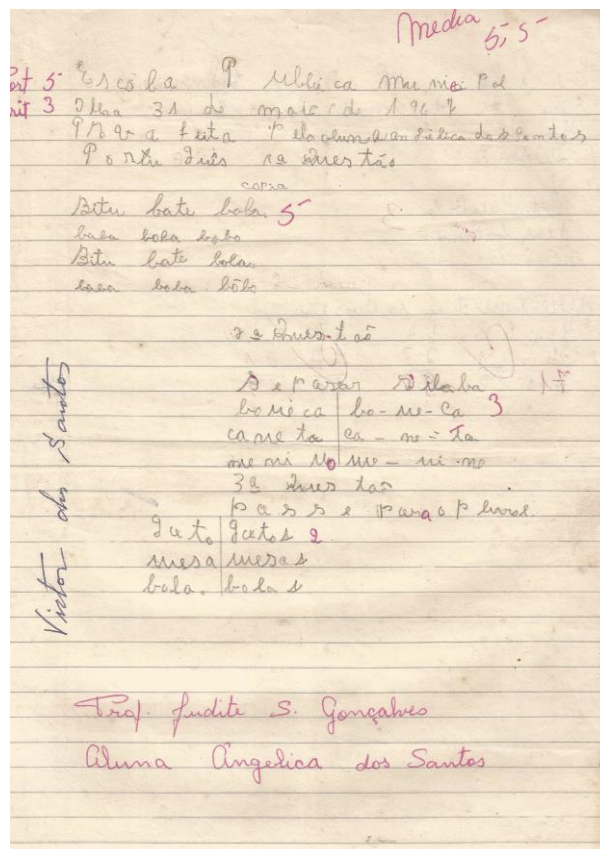 Media 5,5
Port 5 Escola Publica Municipal
rit 3 31 de maio de 1967
Prova feita Pelo aluna angélica dos santos
Português 1ª Questão
copia
Bitu bate bola. 5
baba boba bobo
Bitu bate bola.
baba boba bôbo
2ª Questão
Separar Silaba
boneca bo-ne-ca 3
caneta ca-ne-ta
menino me-ni-no
3ª Questão
Passe para o Plural.
gato gatos 2
mesa mesas
bola. bolas
Victor dos Santos
Prof. Judite S. Gonçalves
Aluna Angelica dos Santos